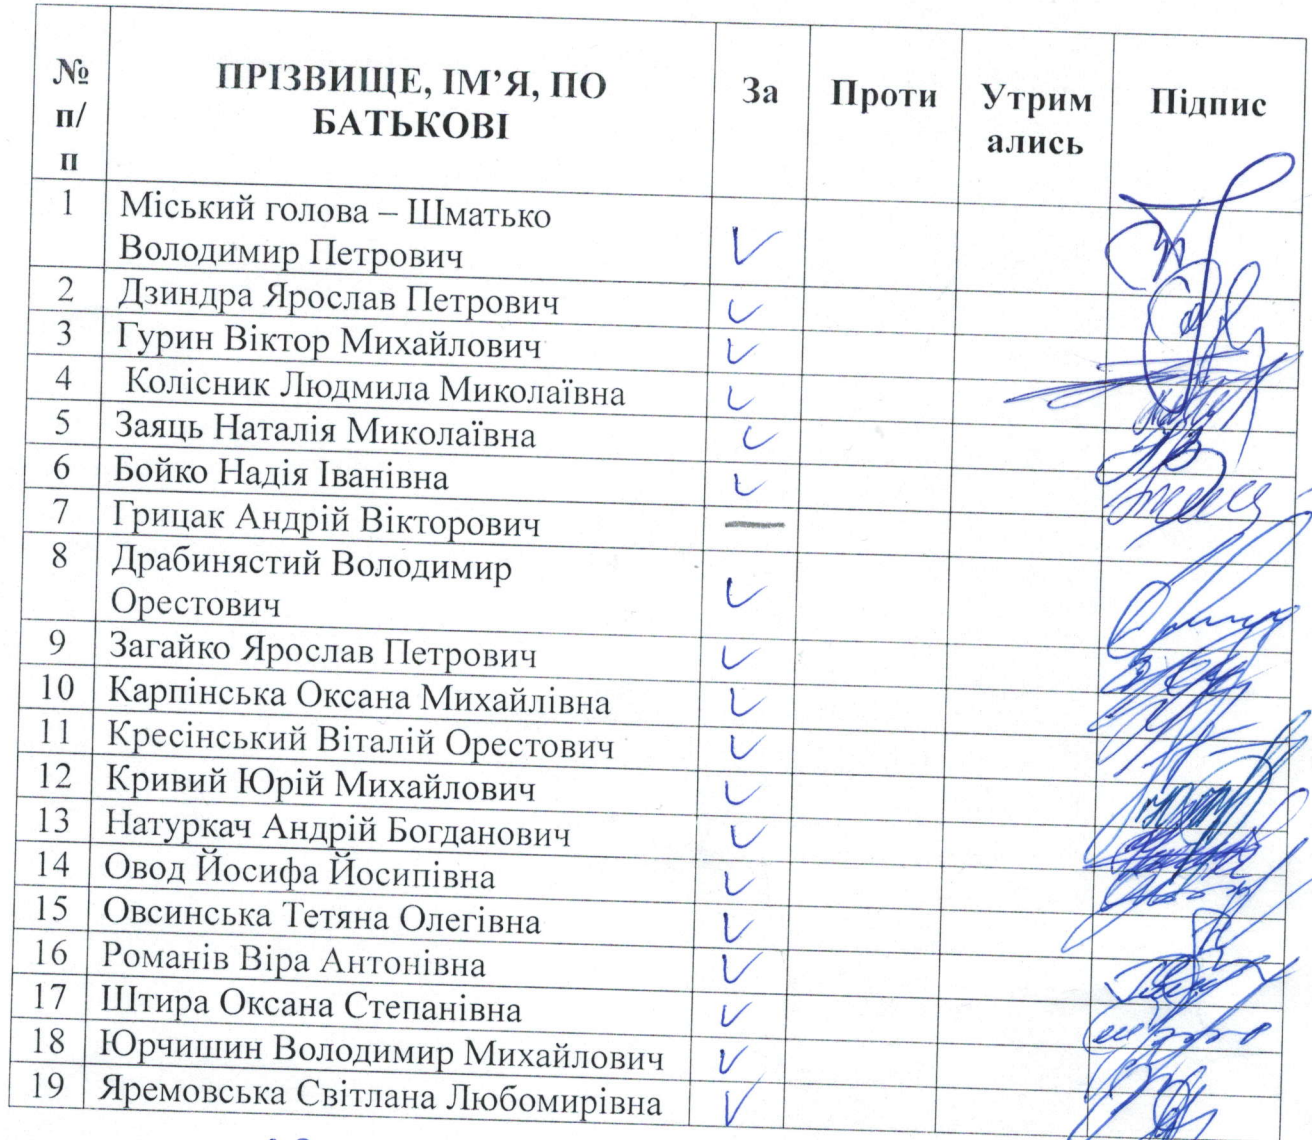 № п/п ПРІЗВИЩЕ, ІМ’Я, ПО БАТЬКОВІ За Проти Утримались Підпис
1 Міський голова – Шматько
Володимир Петрович
2 Дзиндра Ярослав Петрович
3 Гурин Віктор Михайлович
4 Колісник Людмила Миколаївна
5 Заяць Наталія Миколаївна
6 Бойко Надія Іванівна
7 Грицак Андрій Вікторович
8 Драбинястий Володимир
Орестович
9 Загайко Ярослав Петрович
10 Карпінська Оксана Михайлівна
11 Кресінський Віталій Орестович
12 Кривий Юрій Михайлович
13 Натуркач Андрій Богданович
14 Овод Йосифа Йосипівна
15 Овсинська Тетяна Олегівна
16 Романів Віра Антонівна
17 Штира Оксана Степанівна
18 Юрчишин Володимир Михайлович
19 Яремовська Світлана Любомирівна